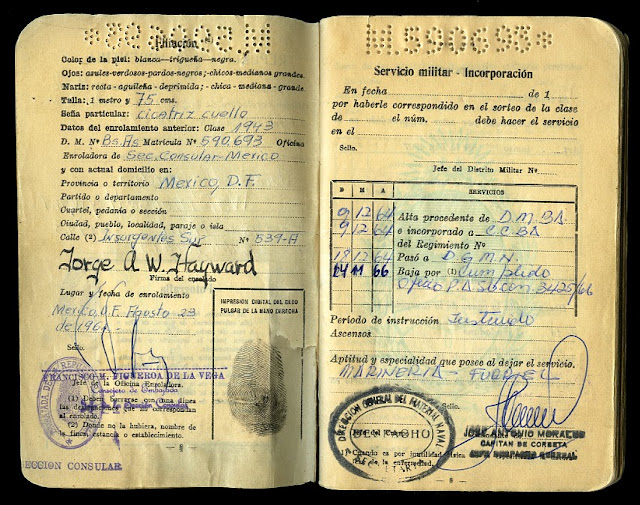 M.590693*
Filiación
Color de la piel: blanca—trigueña—negra.
Ojos: azules-verdosos-pardos-negros; -chicos-medianos grandes.
Nariz: recta - aguileña - deprimida; - chica - mediana - grande.
Talla: 1 metro y 75 cms.
Seña particular: cicatriz cuello
Datos del enrolamiento anterior: Clase 1943
D. M. Nº Bs.As Matrícula Nº 590,693 Oficina
Enroladora de Sec. Consular-Mexico
y con actual domicilio en:
Provincia o territorio Mexico, D.F.
Partido o departamento
Cuartel, pedanía o sección
Ciudad, pueblo, localidad, paraje o isla
Calle (2) Insurgentes Sur Nº 539-A
Jorge A W. Hayward
Firma del enrolado
Lugar y fecha de enrolamiento
Mexico, D.F. Agosto 23
de 196
Sello.
IMPRESION DIGITAL DEL DEDO
PULGAR DE LA MANO DERECHA
FRANCISCO M. FIGUEROA DE LA VEGA
Consejero de Embajada
Jefe de la Oficina Enroladora.
(1) Deben borrarse con una línea
las designaciones que no correspondan
al enrolado.
(2) Donde no la hubiera, nombre de
la finca, estancia o establecimiento.
SECCION CONSULAR
M.590693*
Servicio militar - Incorporación
En fecha de 1
por haberle correspondido en el sorteo de la clase
de el núm. debe hacer el servicio
en el
Sello.
Jefe del Distrito Militar Nº
D M A SERVICIOS
9 12 64 Alta procedente de D.M.BA.
9 12 64 e incorporado a C.C.BA
del Regimiento Nº
18 12 64 Pasó a D.G.M.N.
11 66 Baja por (1) Cumplido
3425/66
Período de instrucción Instruido
Ascensos
Aptitud y especialidad que posee al dejar el servicio.
MARINERIA - FUSILEL
Sello.
DIRECCION GENERAL DEL PERSONAL NAVAL
DESPACHO
JOSE ANTONIO MORALES
CAPITAN DE CORBETA
JEFE DESPACHO GENERAL
(1) Cuando es por inutilidad física
de la enfermedad.